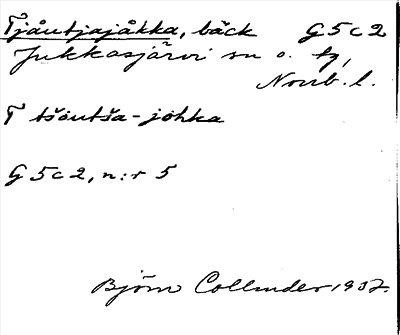 Tjåutjajåkka, bäck G5c2
Jukkasjärvi sn o. tg,
Norrb. l.
T tšoutša-johka
G5c2, n:r 5
Björn Collinder 1937.